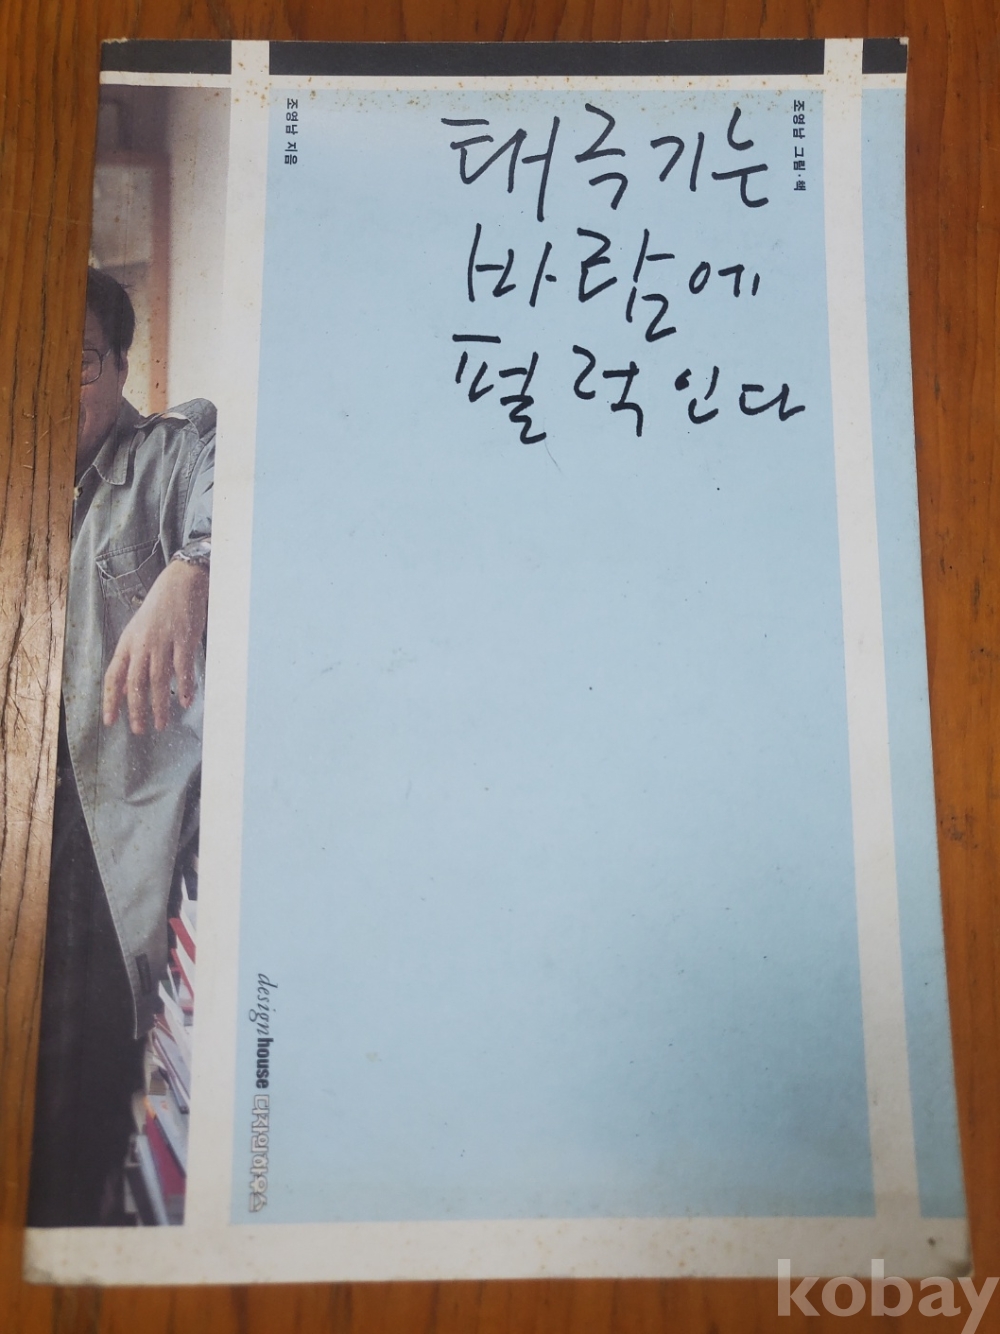 태극기는
바람에
펄럭인다
조영남 그림·책
조영남 지음
designhouse 디자인하우스
kobay